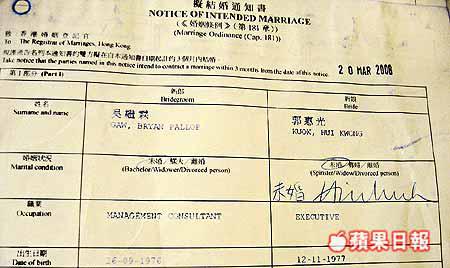 擬結婚通知書
NOTICE OF INTENDED MARRIAGE
(《婚姻條例》(第181章))
(Marriage Ordinance (Cap. 181))
致 香港婚姻登記官
To The Registrar of Marriages, Hong Kong
Take notice that the parties named in this notice intend to contract a marriage within 3 months from the date of this notice.
20 MAR 2008
第1部分 (Part I)
新郎 Bridegroom
新娘 Bride
姓名 Surname and name
GAW, BRYAN PALLOP
郭惠光
KUOK, HUI KWONG
婚姻狀況 Marital condition
未婚／鰥夫／離婚
(Bachelor/Widower/Divorced person)
未婚／離婚
(Spinster/Widow/Divorced person)
未婚
職業 Occupation
MANAGEMENT CONSULTANT
EXECUTIVE
出生日期 Date of birth
26-09-1976
12-11-1977
蘋果日報